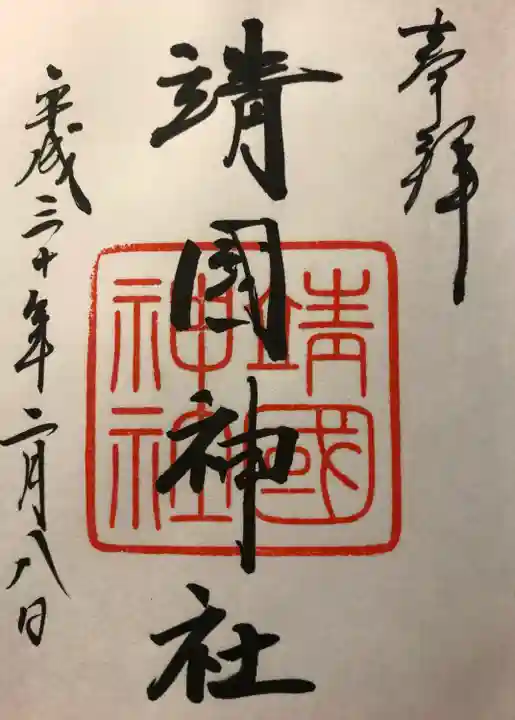 奉拝
靖國神社
靖國
神社
平成三十年二月八日